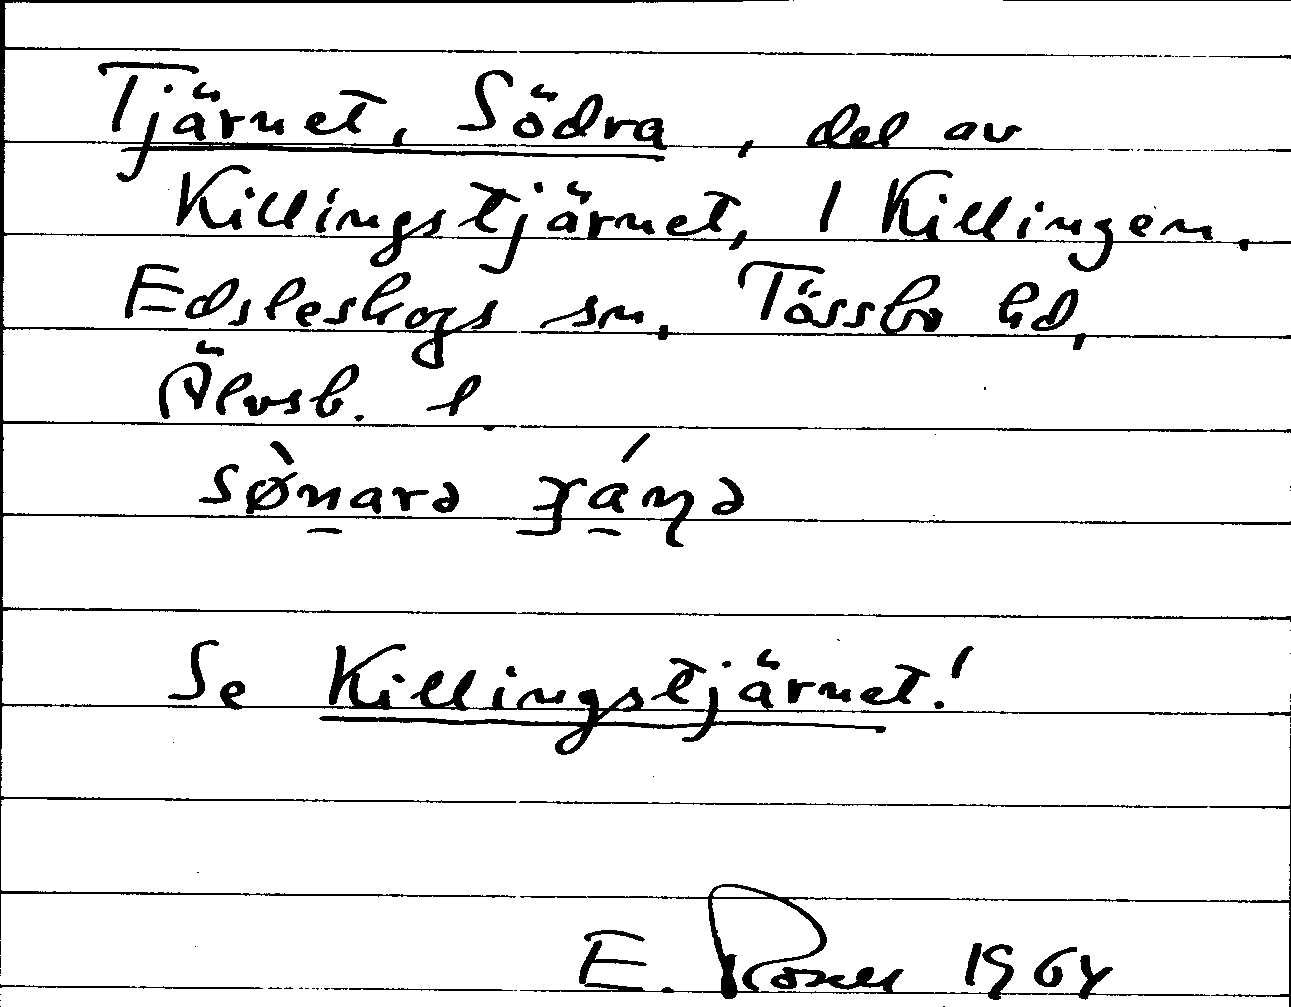 Tjärnet, Södra, del av
Killingstjärnet, 1 Killingen.
Edsleskogs sn, Tössbo hd,
Älvsb. l.
Se Killingstjärnet!
E. 1964